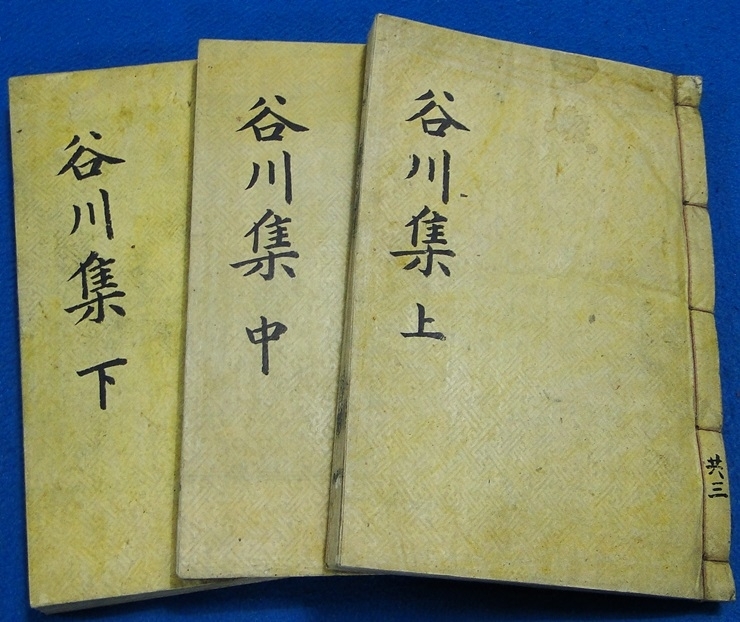 谷川集 上
共三
谷川集 中
谷川集 下